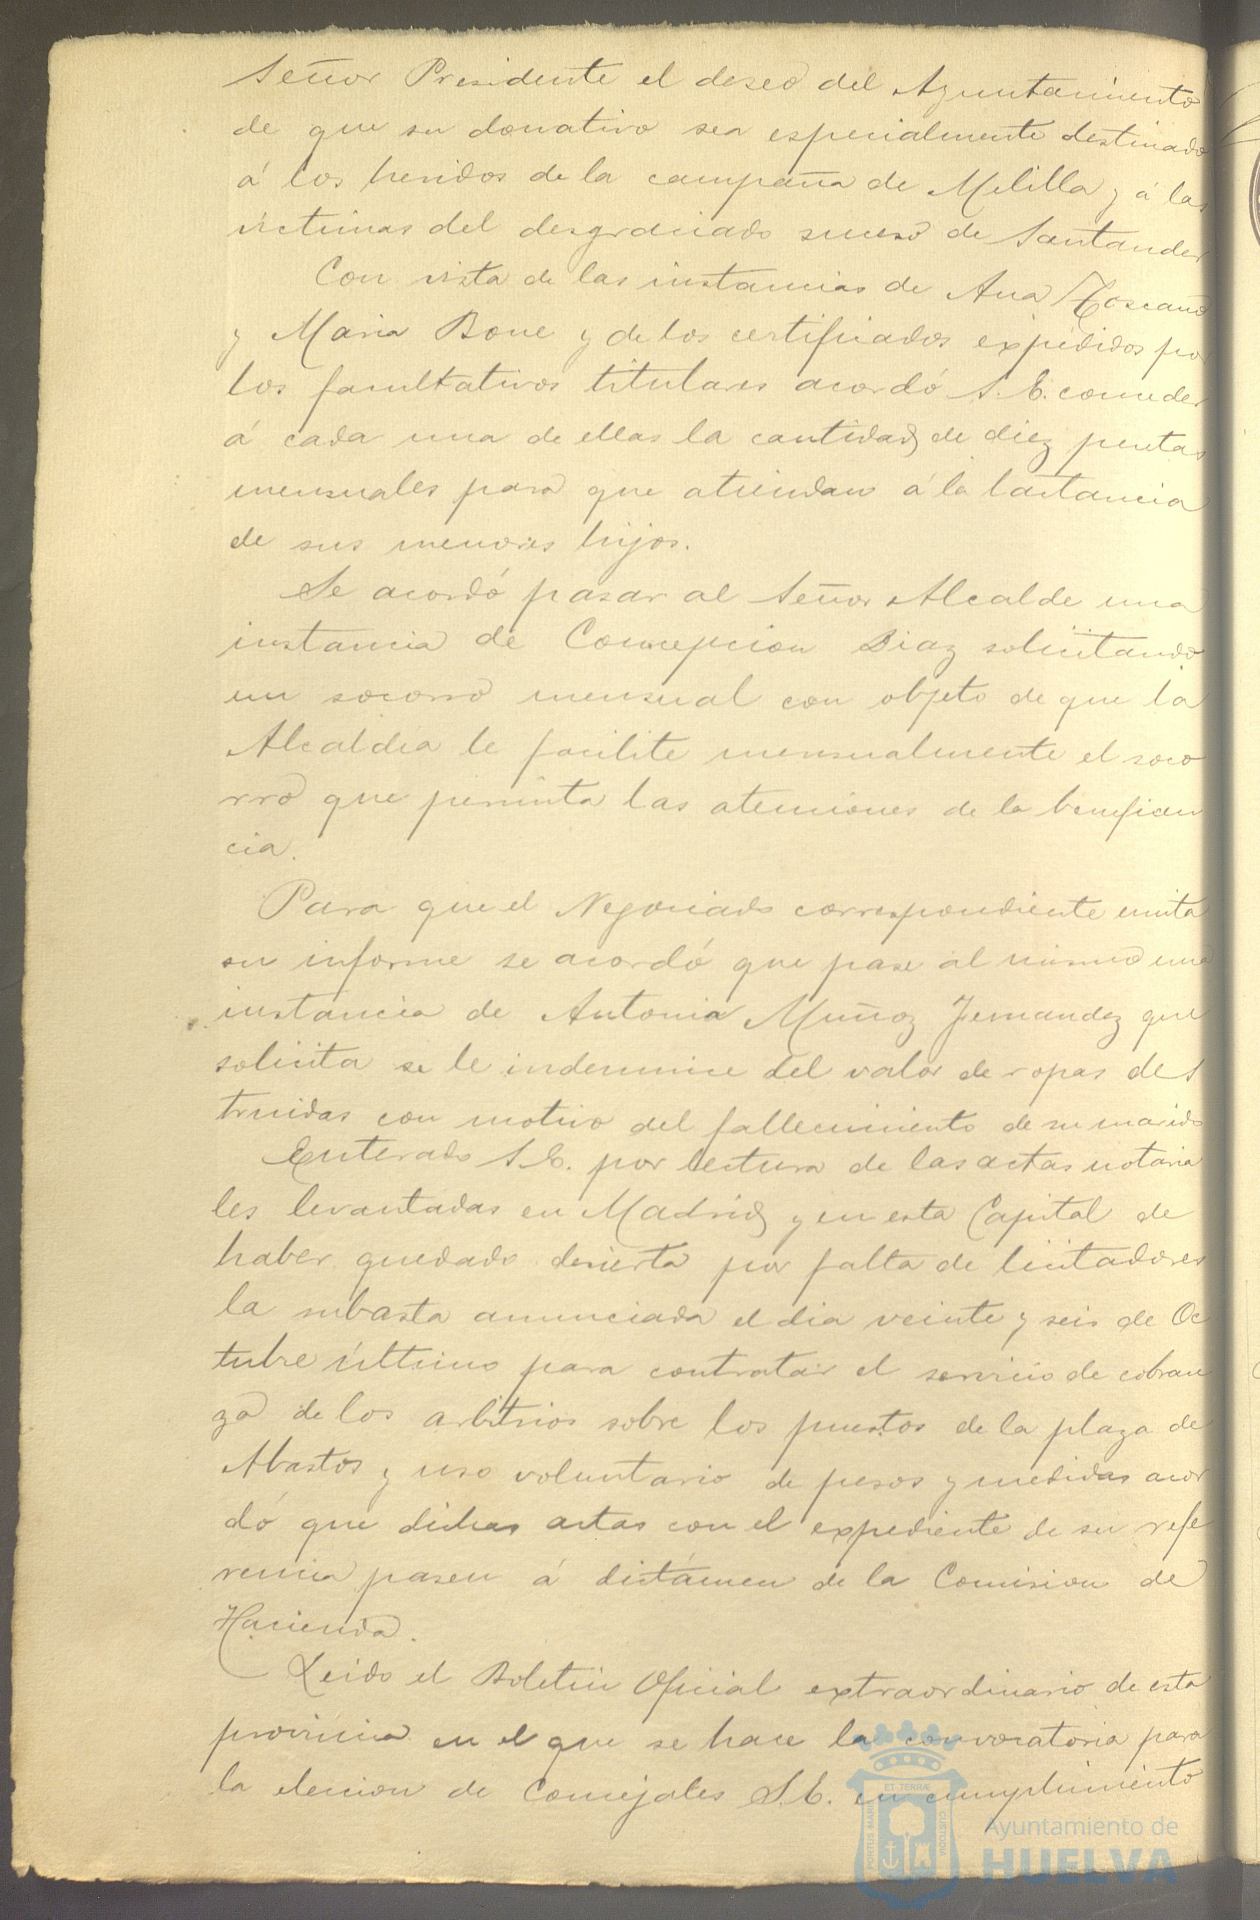 Señor Presidente el deseo del Ayuntamiento
de que su donativo sea especialmente destinado
á los heridos de la campaña de Melilla y á las
víctimas del desgraciado suceso de Santander
Con vista de las instancias de Ana Toscano
y Maria Bone y de los certificados expedidos por
los facultativos titulares acordó S. E. conceder
á cada una de ellas la cantidad de diez pesetas
mensuales para que atiendan á la lactancia
de sus menores hijos.
Se acordó pasar al Señor Alcalde una
instancia de Concepcion Diaz solicitando
un socorro mensual con objeto de que la
Alcaldia le facilite mensualmente el soco
rro que permita las atenciones de la beneficen
cia.
Para que el Negociado correspondiente emita
su informe se acordó que pase al mismo una
instancia de Antonia Muñoz Fernandez que
solicita se le indemnice del valor de ropas des
truidas con motivo del fallecimiento de su marido
Enterado S. E. por lectura de las actas notaria
les levantadas en Madrid y en esta Capital de
haber quedado desierta por falta de licitadores
la subasta anunciada el dia veinte y seis de Oc
tubre último para contratar el servicio de cobran
za de los arbitrios sobre los puestos de la plaza de
Abastos y uso voluntario de pesos y medidas acor
dó que dichas actas con el expediente de su refe
rencia pasen á dictámen de la Comision de
Hacienda.
Leido el Boletin Oficial extraordinario de esta
provincia en el que se hace la convocatoria para
la eleccion de Concejales S. E. en cumplimiento
PORTUS MARIS ET TERRÆ CUSTODIA
Ayuntamiento de
HUELVA